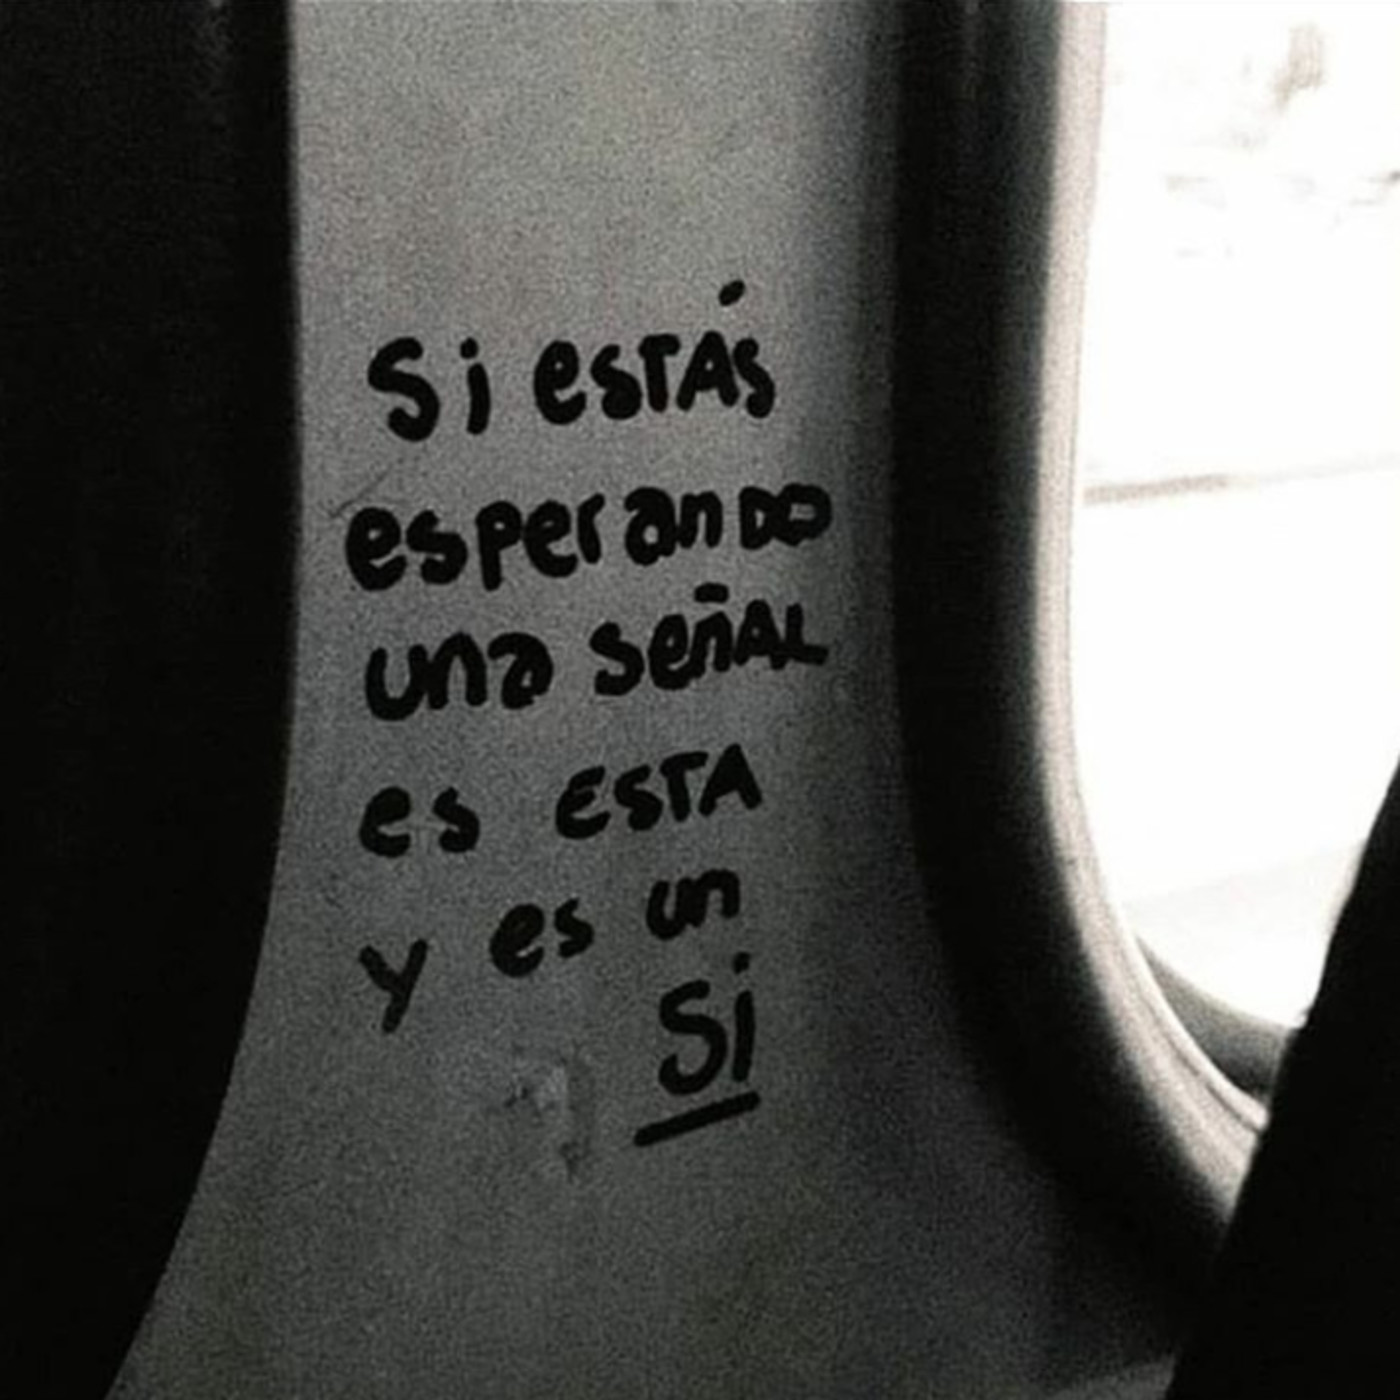 Si estás
esperando
una señal
es esta
y es un
Si